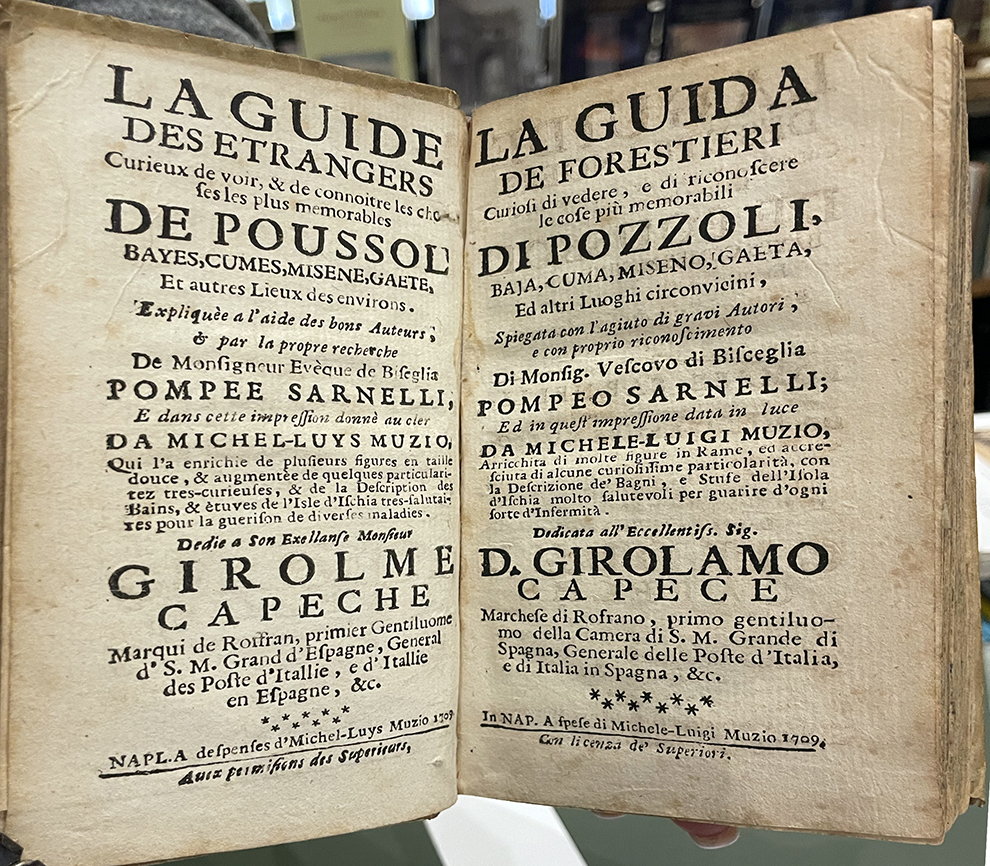 LA GUIDE
DES ETRANGERS
Curieux de voir, & de connoitre les cho-
ſes les plus memorables
DE POUSSOL
BAYES, CUMES, MISENE, GAETE,
Et autres Lieux des environs.
Expliquèe a l'aide des bons Auteurs;
& par la propre recherche
De Monſigneur Evèque de Biſeglia
POMPEE SARNELLI,
E dans cette impreſſion donnè au cler
DA MICHEL-LUYS MUZIO,
Qui l'a enrichie de pluſieurs figures en taille
douce, & augmentée de quelques particulari-
tez tres-curieuſes, & de la Deſcription des
Bains, & ètuves de l'Isle d'Iſchia tres-ſalutai-
res pour la gueriſon de diverſes maladies.
Dedie a Son Exellanſe Monſieur
GIROLME
CAPECHE
Marqui de Roffran, primier Gentiluome
d' S. M. Grand d'Eſpagne, General
des Poſte d'Itallie, e d'Itallie
en Eſpagne, &c.
NAPL. A deſpenſes d'Michel-Luys Muzio 1709
Aux permiſions des Superieurs,
LA GUIDA
DE FORESTIERI
Curioſi di vedere, e di riconoſcere
le coſe più memorabili
DI POZZOLI,
BAJA, CUMA, MISENO, GAETA,
Ed altri Luoghi circonvicini,
Spiegata con l'agiuto di gravi Autori,
e con proprio riconoſcimento
Di Monſig. Veſcovo di Biſceglia
POMPEO SARNELLI;
Ed in queſt impreſſione data in luce
DA MICHELE-LUIGI MUZIO,
Arricchita di molte figure in Rame, ed accre-
ſciuta di alcune curioſiſſime particolarità, con
la Deſcrizione de' Bagni, e Stufe dell'Iſola
d'Iſchia molto ſalutevoli per guarire d'ogni
ſorte d'Infermità.
Dedicata all'Eccellentiſs. Sig.
D. GIROLAMO
CAPECE
Marcheſe di Rofrano, primo gentiluo-
mo della Camera di S. M. Grande di
Spagna, Generale delle Poſte d'Italia,
e di Italia in Spagna, &c.
In NAP. A ſpeſe di Michele-Luigi Muzio 1709.
Con licenza de' Superiori.